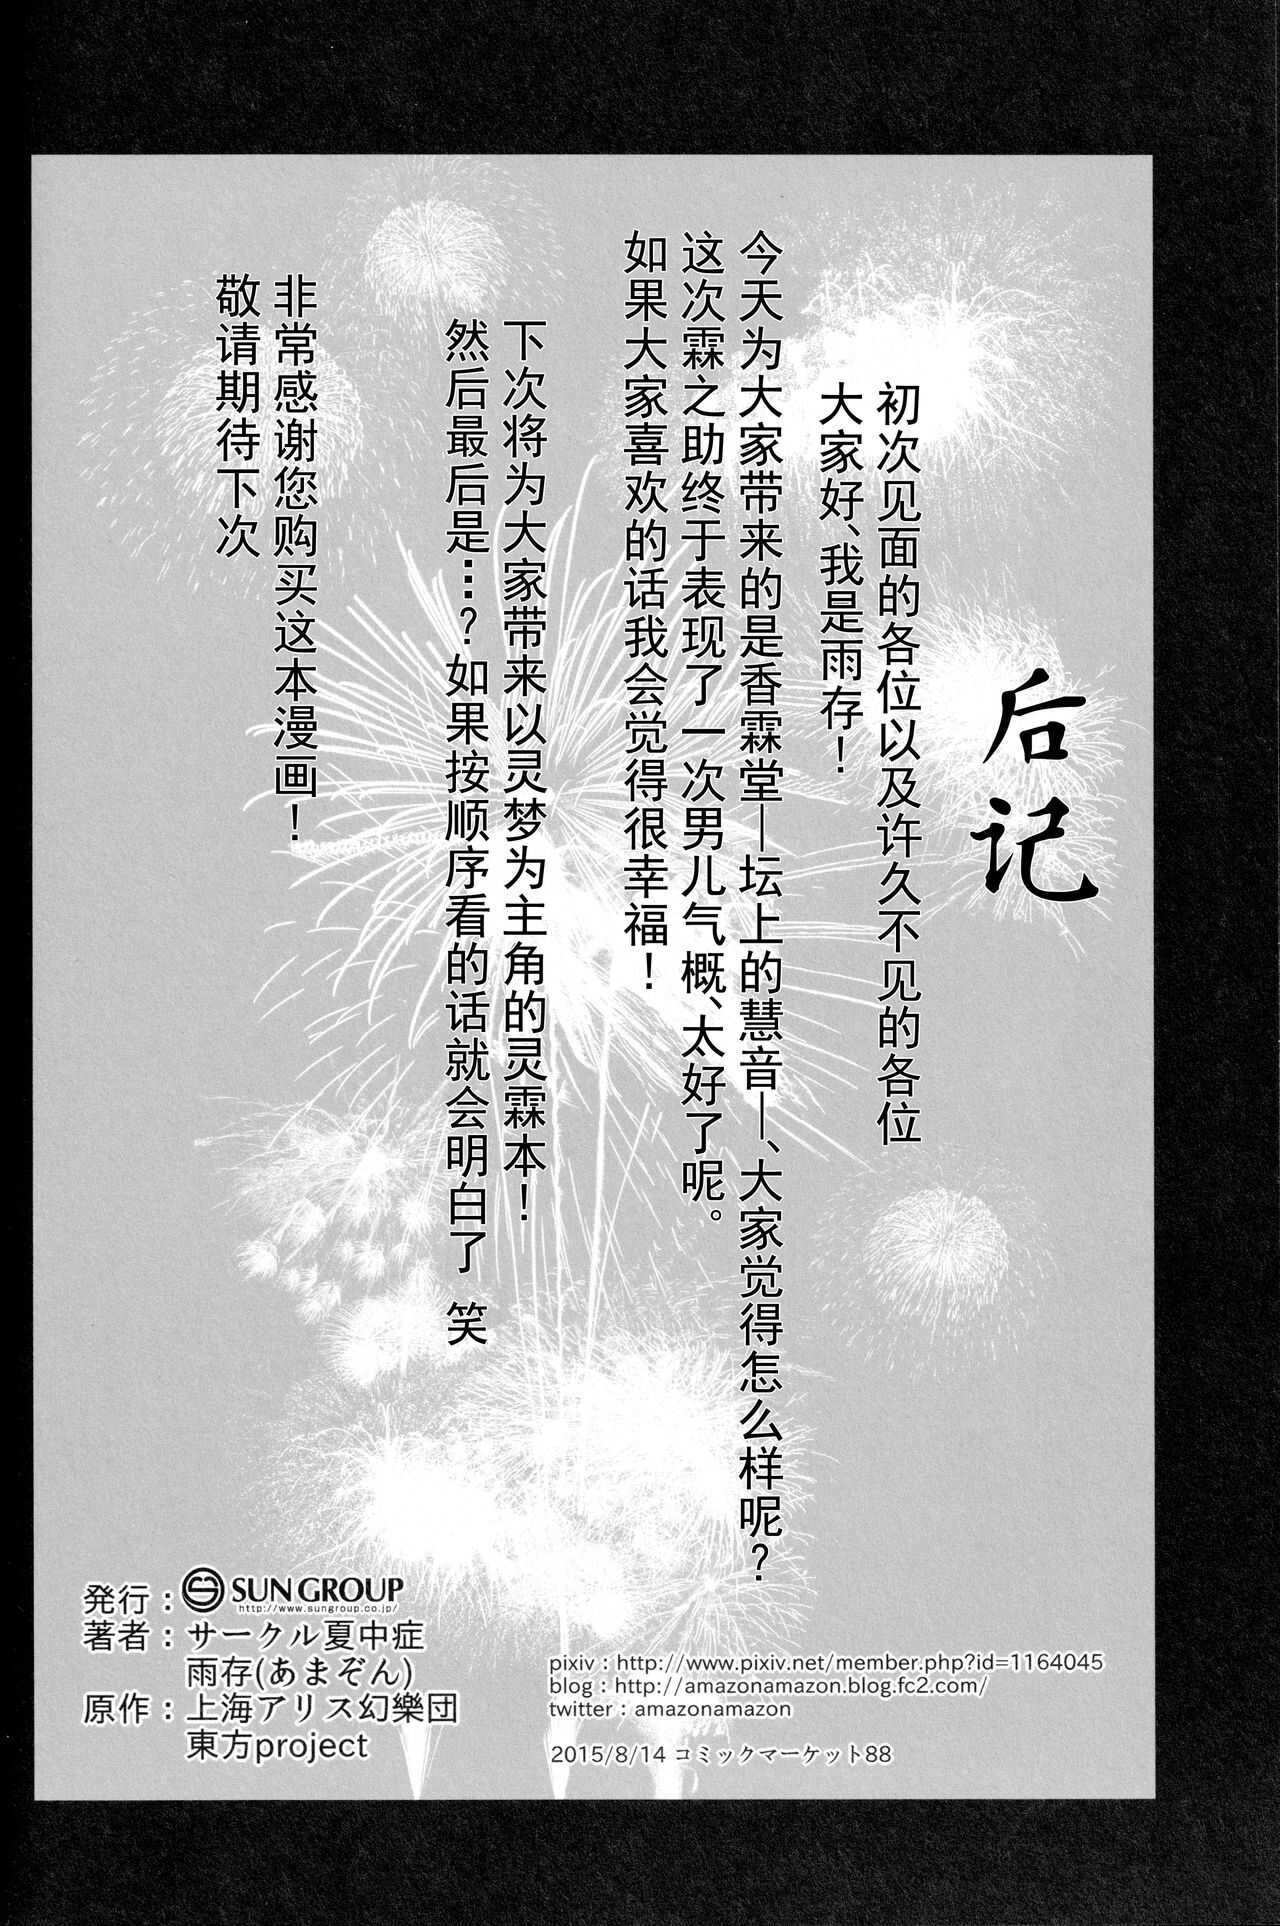 后记
初次见面的各位以及许久不见的各位
大家好、我是雨存！
今天为大家带来的是香霖堂—坛上的慧音—、大家觉得怎么样呢？
这次霖之助终于表现了一次男儿气概、太好了呢。
如果大家喜欢的话我会觉得很幸福！
下次将为大家带来以灵梦为主角的灵霖本！
然后最后是…？如果按顺序看的话就会明白了 笑
非常感谢您购买这本漫画！
敬请期待下次
発行：SUN GROUP
http://www.sungroup.co.jp/
著者：サークル夏中症
雨存(あまぞん)
原作：上海アリス幻樂団
東方project
pixiv：http://www.pixiv.net/member.php?id=1164045
blog：http://amazonamazon.blog.fc2.com/
twitter：amazonamazon
2015/8/14 コミックマーケット88